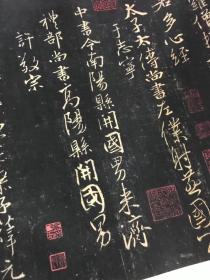 羅僧
若多心經
太子太傅尚書左僕射燕國
于志寧
中書令南陽縣開國男來濟
禮部尚書高陽縣開國男
許敬宗
元